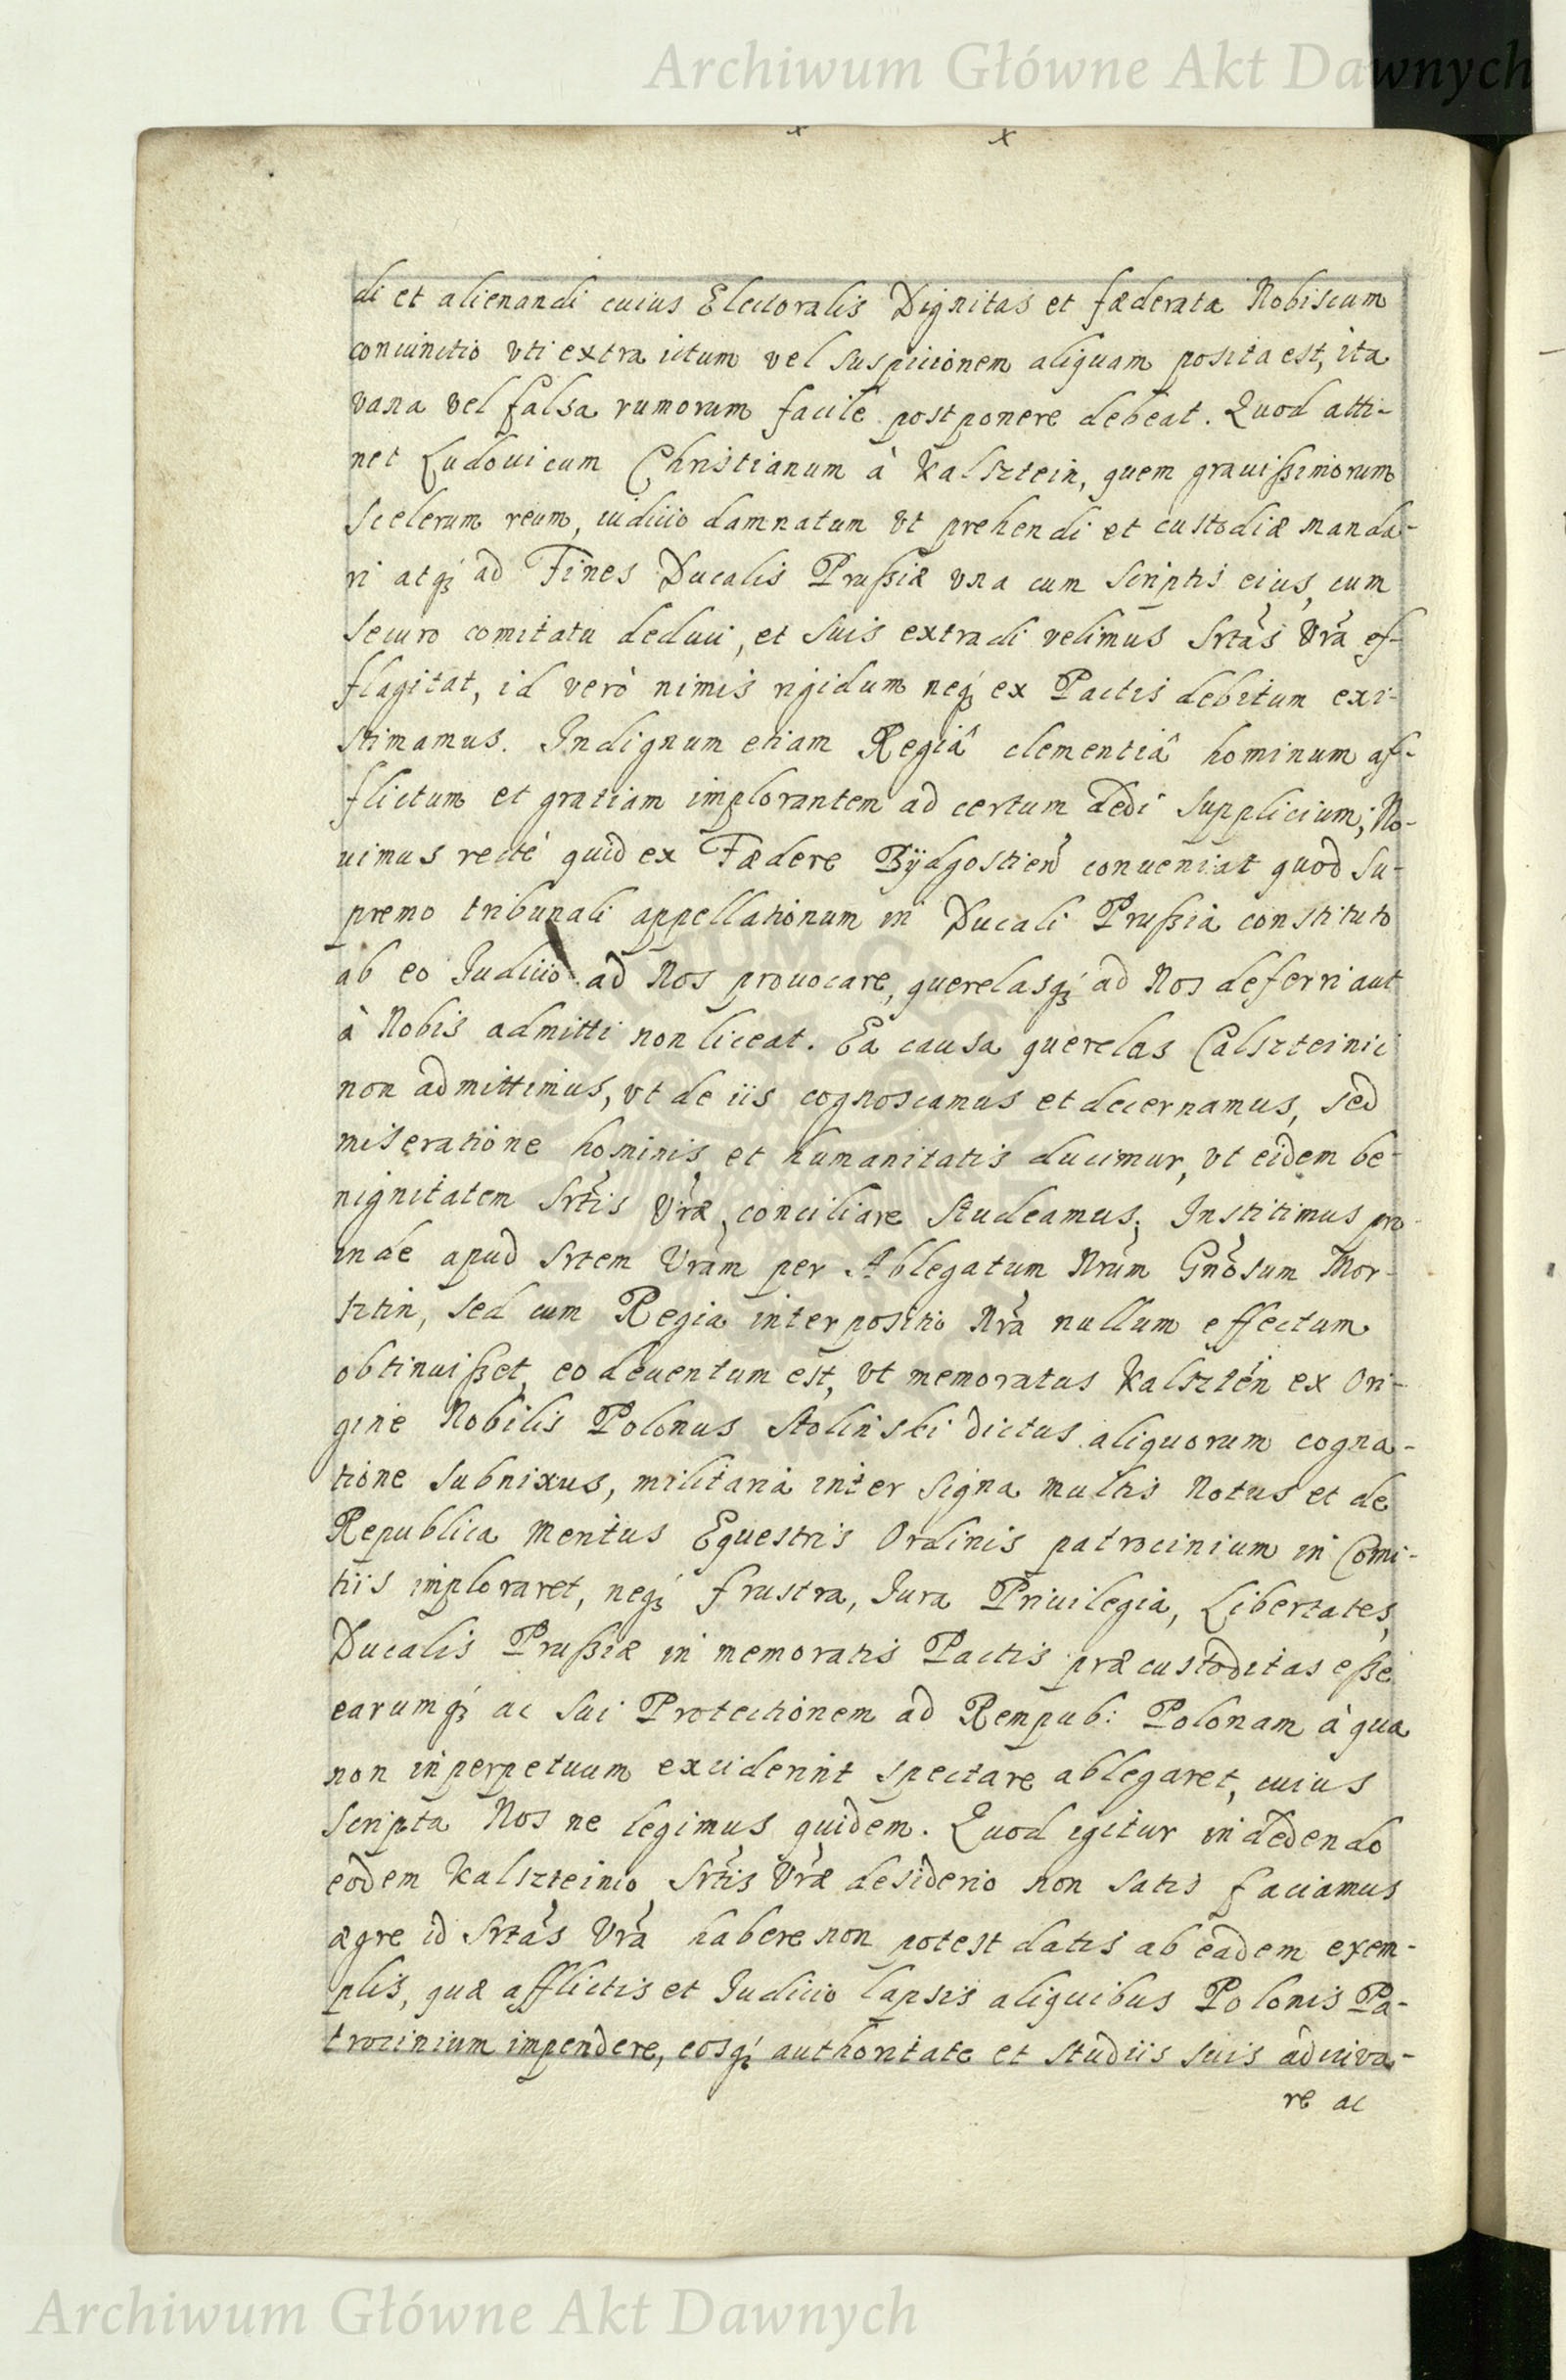 Archiwum Główne Akt Dawnych
di et alienandi cuius Electoralis Dignitas et fæderata Nobiscum
coniunctio vti extra ictum vel suspicionem aliquam posita est, ita
vana vel falsa rumorum facile postponere debeat. Quod atti-
net Ludouicum Christianum à Kalsztein, quem grauißimorum
scelerum reum, iudicio damnatum vt prehendi et custodiæ manda-
ri atq; ad Fines Ducalis Prußiæ vna cum scriptis eius, cum
securo comitatu deduci, et suis extradi velimus Srtas Vra ef-
flagitat, id verò nimis rigidum neq; ex Pactis debitum exi-
stimamus. Indignum etiam Regiâ clementiâ hominum af-
flictum et gratiam implorantem ad certum dedi supplicium; No-
uimus rectè quid ex Fædere Bÿdgostien conueniat quod su-
premo tribunali appellationum in Ducali Prußia constituto
ab eo Judicio ad Nos prouocare, querelasq; ad Nos deferri aut
à Nobis admitti non liceat. Ea causa querelas Calszteinici
non admittimus, vt de iis cognoscamus et decernamus, sed
miseratione hominis et humanitatis ducimur, vt eidem be-
nignitatem Srtis Vræ conciliare studeamus; Institimus pro-
inde apud Srtem Vram per Ablegatum Nrum Gnosum Mor-
sztin, sed cum Regia interpositio Nra nullum effectum
obtinuißet, eo deuentum est, vt memoratus Kalsztein ex Ori-
gine Nobilis Polonus Stolinski dictus aliquorum cogna-
tione subnixus, militaria inter signa multis notus et de
Republica meritus Equestris Ordinis patrocinium in Comi-
tiis imploraret, neq; frustra, Jura Priuilegia, Libertates,
Ducalis Prußiæ in memoratis Pactis præcustoditas eße
earumq; ac sui Protectionem ad Rempub: Polonam à qua
non in perpetuum exciderint spectare ablegaret, cuius
scripta Nos ne legimus quidem. Quod igitur in dedendo
eodem Kalszteinio Srtis Vræ desiderio non satis faciamus
ægre id Srtas Vra habere non potest datis ab eadem exem-
plis, quæ afflictis et Judicio lapsis aliquibus Polonis Pa-
trocinium impendere, eosq; authoritate et studiis suis adiuva-
re ac
Archiwum Główne Akt Dawnych